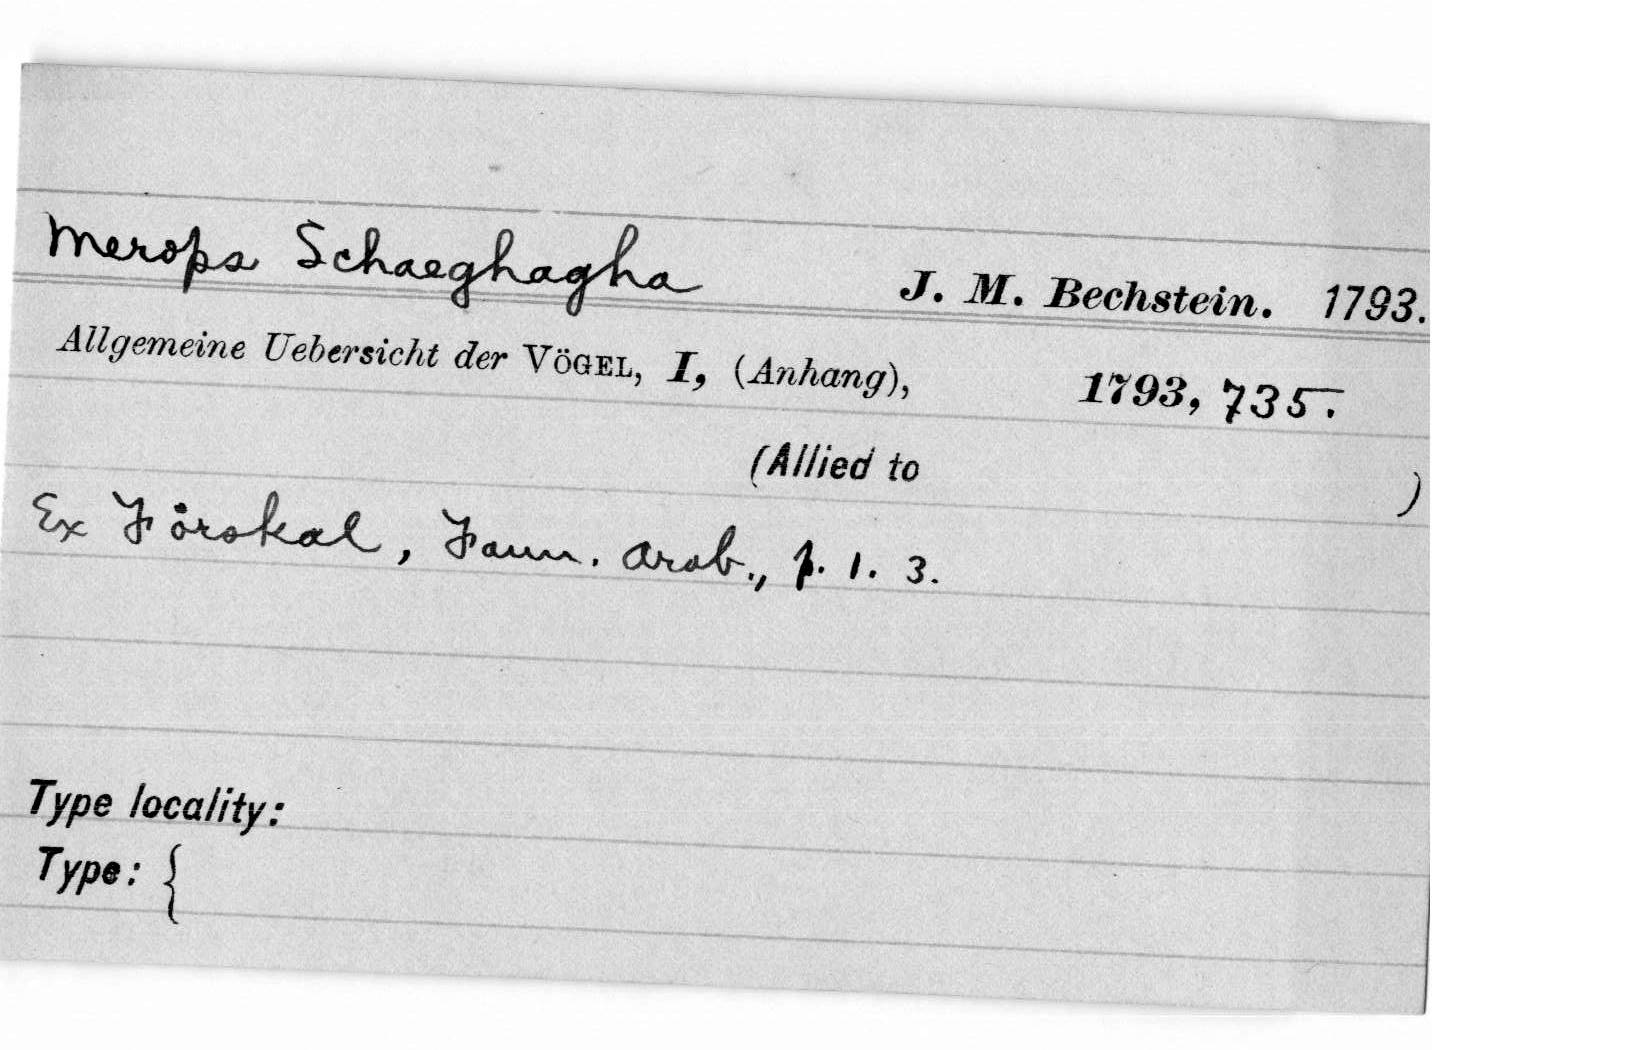 Merops Schaeghagha J. M. Bechstein. 1793.
Allgemeine Uebersicht der VÖGEL, I, (Anhang), 1793, 735.
(Allied to )
Ex Fòrskal, Faun. Arab., p. 1. 3.
Type locality:
Type: {